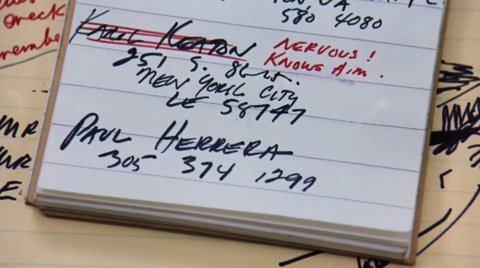 580 4080
KARL KEATON
NERVOUS!
KNOWS AIM.
251 S. 86
NEW YORK CITY
LE 58747
PAUL HERRERA
305 374 1299
MR
E